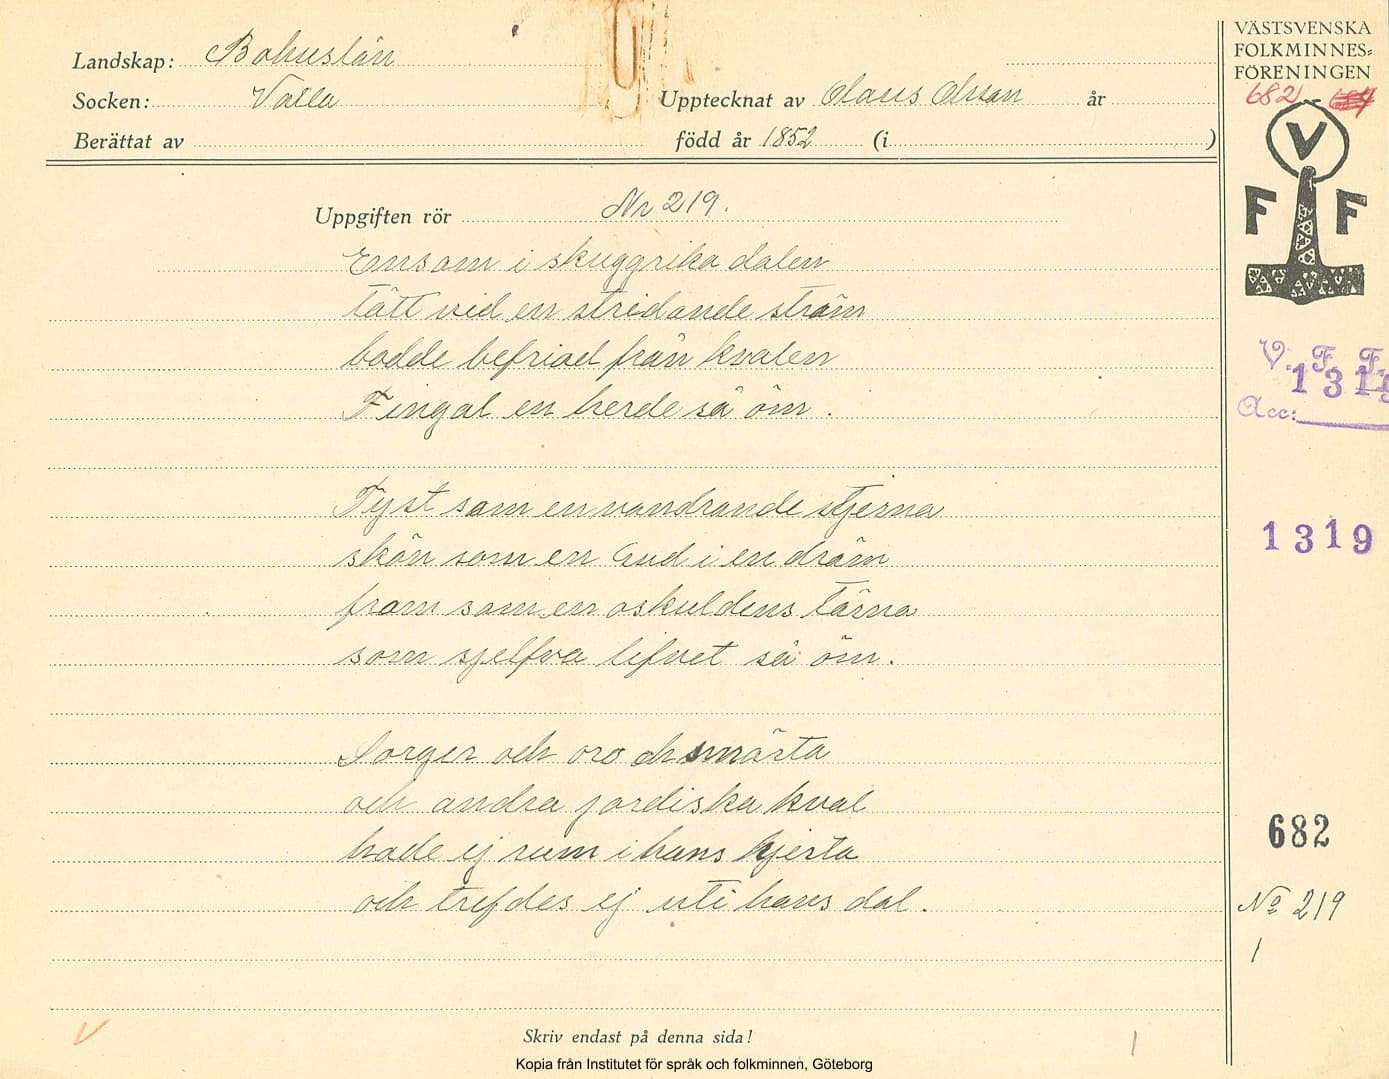 Landskap: Bohuslän
Socken: Valla
Upptecknat av Olaus Olsson år
Berättat av
född år 1852 (i )
VÄSTSVENSKA
FOLKMINNES-
FÖRENINGEN
682
V
F F
Uppgiften rör Nr 219.
Ensam i skuggrika dalen
tätt vid en stridande ström
bodde befriad från kvalen
Fingal en herde så öm.
Tyst som en vandrande stjerna
skön som en Gud i en dröm
from som en oskuldens tärna
som sjelfva lifvet så öm.
Sorger och oro och smärta
och andra jordiska kval
hade ej rum i hans hjerta
och trefdes ej uti hans dal.
V. F. F.
1319
Acc:
1319
682
No 219
1
V
Skriv endast på denna sida!
1
Kopia från Institutet för språk och folkminnen, Göteborg